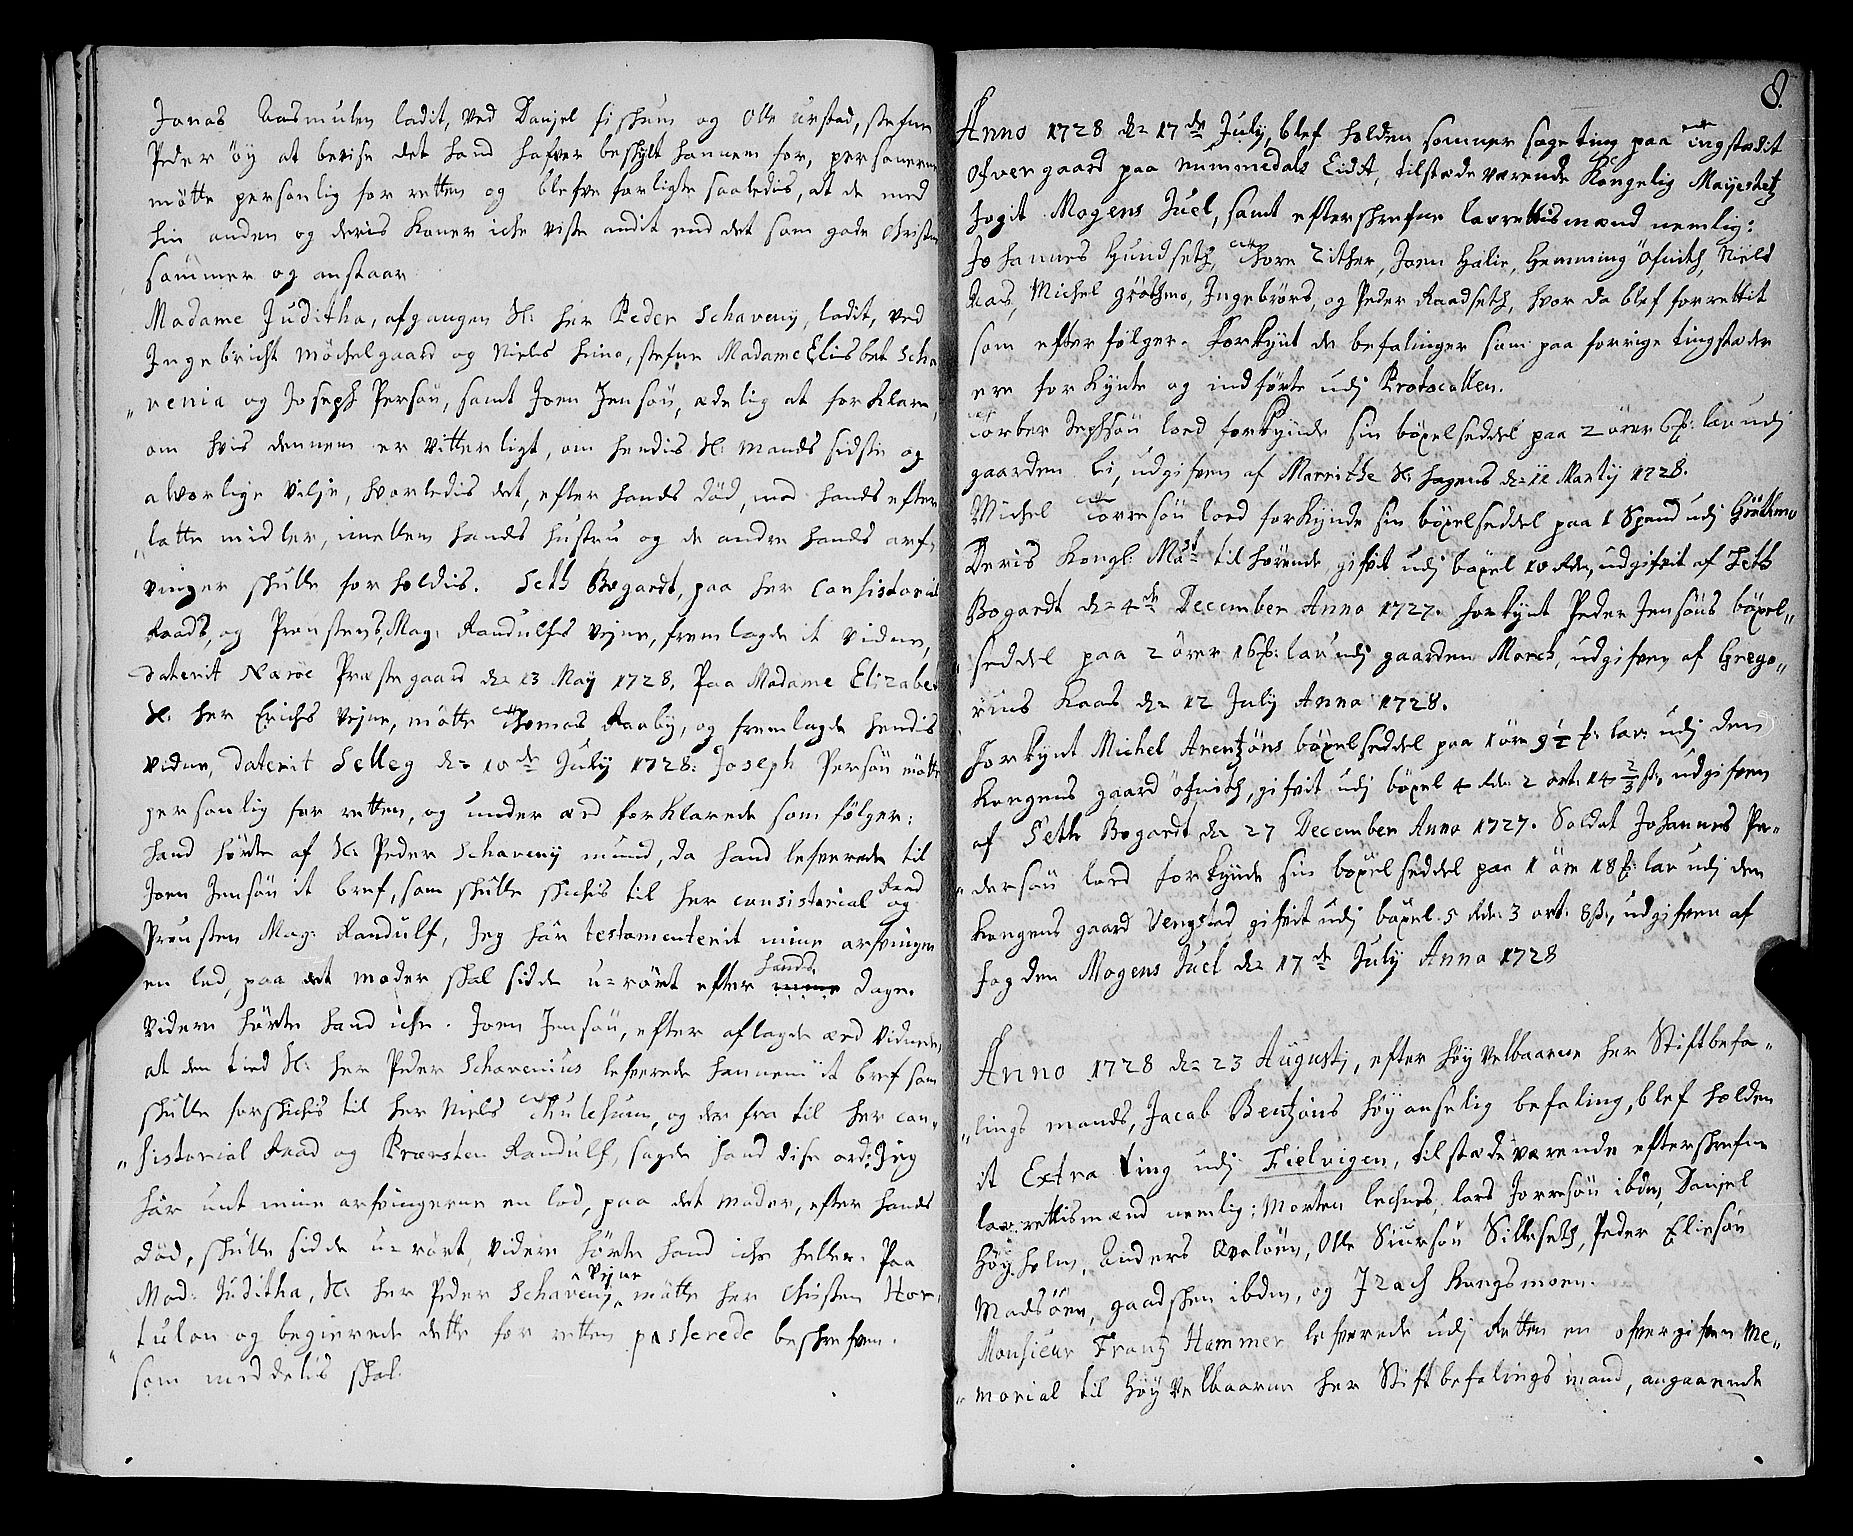 Jonas Aasmulen ladit, ved Danjel fiskum og Olle urstad, stefne
Peder öÿ at bevise det hand hafver beskylt hannem for, personerne
mötte personlig for retten og blefve forligte saaledis, at de med
hin anden og deris koner iche viste andit end det som gode Christne
sömmer og anstaar
Madame Juditha, afgangen Sl: her Peder Schavenÿ, ladit, ved
Ingebricht Möchelgaard og Niels finne, stefne Madame Elisbet Scha
„venia og Joseph Persön, samt Joen Jensön, ædelig at forklare,
om hvis dennem er vitterligt, om hendis Sl: mands sidste og
alvorlige vilje, hvorledis det, efter hands död, med hands efter
„latte midler, imellem hands hustru og de andre hands arf„
vinger skulle forholdis. Seth Bogardt, paa her Consistorial
Raads, og Proustens, Mag: Randulfs vejne, fremlagde it vidne,
daterit Næröe Præstegaard de 13 Maÿ 1728. Paa Madame Elizabet
Sl: her Erichs vejne, mötte Thomas Raaby, og fremlagde hendis
vidne, daterit Selleg de 10de Julÿ 1728: Joseph Persön mötte
personlig for retten, og under æd forklarede som fölger:
hand hörte af Sl: Peder Schavenÿ mund, da hand lefverede til
Joen Jensön it bref, som skulle skichis til her consistorial Raad og
Prousten Mag: Randulf, Jeg här testamenterit mine arfvinger
en lod, paa det moder skal sidde u=rört efter mine hands dage.
videre hörte hand iche. Joen Jensön, efter aflagde æd vidnede,
at den tied Sl: her Peder Schavenius lefverede hannem it bref som
skulle forskichis til her Niels Thulesun, og der fra til her con„
„sistorial Raad og Provsten Randulf, sagde hand dise ord: Jeg
här unt mine arfvingerne en lod, paa det moder, efter hands
död, skulle sidde u=rört, videre hörte hand iche heller. Paa
Mad: Juditha, Sl: her Peder Schavenÿ vejne mötte her Christen Hor„
„tulan og begierede dette for retten passerede beskrefven.
som meddelis skal.
8.
Anno 1728 de 17de Julÿ, blef holden sommer sageting paa tingstædit
Ofvergaard paa nummedals Eidit, tilstædeværende Kongelig Mayestetz
fogit Mogens Juel, samt efterskrefne lavrettismænd nemlig:
Johannes Hundseth, Thore Zither, Joen Halie, Hemming Öfuith, Niels
Aas, Michel gröthmo, Ingebrörs, og Peder Raadseth, hvor da blef forrettit
som efterfölger. Forkÿnt de befalinger som paa forrige tingstæder
ere forkÿnte og indförte udj Protocollen.
Torber Jephsön loed forkÿnde sin böxelseddel paa 2 örer 6 ß: lav udj
gaarden Li, udgifven af Marrithe Sl: hagens de 11 Martÿ 1728.
Michel Torresön loed forkÿnde sin böxelseddel paa 1 Spand udj Gröthmo
Deris Kongl: Mast tilhörende, gifvit udj böxel 10 Rdr, udgifvit af Seth
Bogardt de 4de December Anno 1727. forkÿnt Peder Jensöns böxel„
„seddel paa 2 örer 16 ß: lav udj gaarden March, udgifven af Grego„
rius Kaas de 12 Julÿ Anno 1728.
forkÿnt Michel Arentzöns böxelseddel paa 1 öre 9½ ß: lav: udj den
kongens gaard öfuith, gifvit udj böxel 4 Rdr: 2 ort: 14 2/3 ß, udgifven
af Seth Bogardt de 27 December Anno 1727. Soldat Johannes Pe„
„dersön loed forkÿnde sin böxelseddel paa 1 öre 18 ß: lav udj den
kongens gaard Vengstad gifvit udj böxel 5 Rdr: 3 ort: 8 ß:, udgifven af
fogden Mogens Juel de 17de Julÿ Anno 1728
Anno 1728 de 23 Augustj, efter höÿ velbaarne her Stiftbefa„
„lings mands, Jacob Bentzöns höÿanselig befaling, blef holden
it Extra ting udj Fielvigen, tilstædeværende efterskrefne
lavrettismænd nemlig: Morten lechnes, lars Jorresön ibdm, Danjel
höÿholm, Anders Qvalöen, Olle Siursön Silleseth, Peder Eliesön
Madsöen, gaadsken ibdm, og Jzach Kongsmoen.
Monsieur Frantz Hammer lefverede udj Retten en ofvergifven Me„
„morial til höÿ velbaarne her Stiftbefalings mand, angaaende